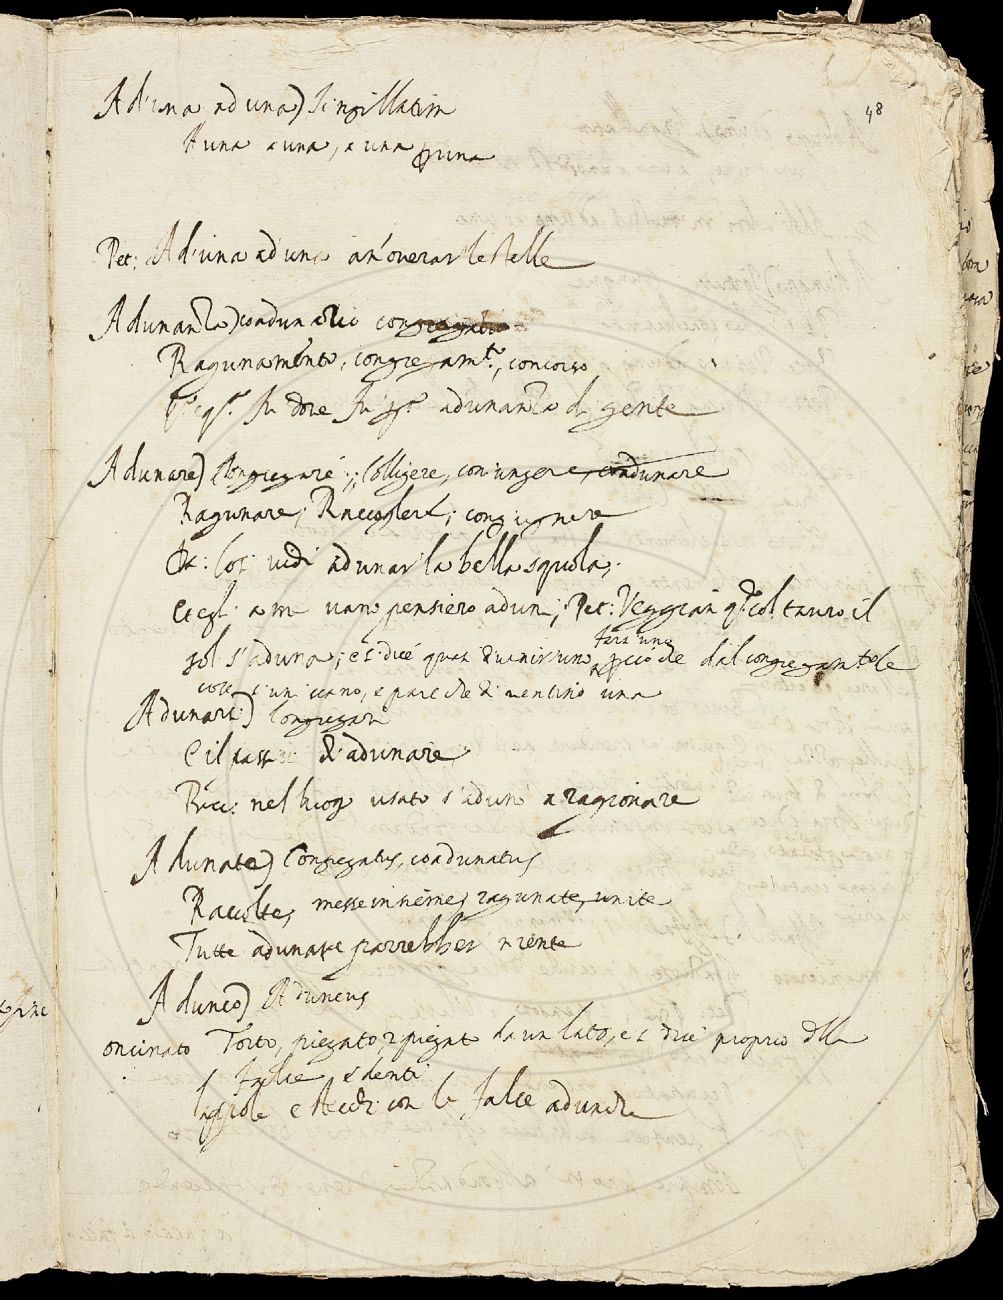 48
Ad una ad una) Singillatim
A una a una, a una per una
Pet: Ad una ad una annoverar le stelle
Adunanza) coadunatio congregatio
Ragunamento, congregamto, concorso
fu dove fu adunanza di gente
Adunare) Congregare; Colligere, coniungere, coadunare
Ragunare; Raccogliere; congiugnere
Cosi vidi adunar la bella squola;
et egli a me vano pensiero aduni; Pet: Veggian qdo col tauro il
sol s'aduna; e si dice quasi d'uanir uno dal congregamto le
fara uno
cose s'uniscano, e pare che diventino una
Adunare) Congregari
E il passivo d'adunare
Bocc: nel luogo usato s'adunò a ragionare
Adunate) Congregatus, coadunatus
Raccolte, messe insieme, ragunate, unite
Tutte adunate parrebber niente
Adunco) Aduncus
oncinato Torto, piegato, ripiegato da un lato, e si dice proprio della
falce, e denti
con le falce adunche